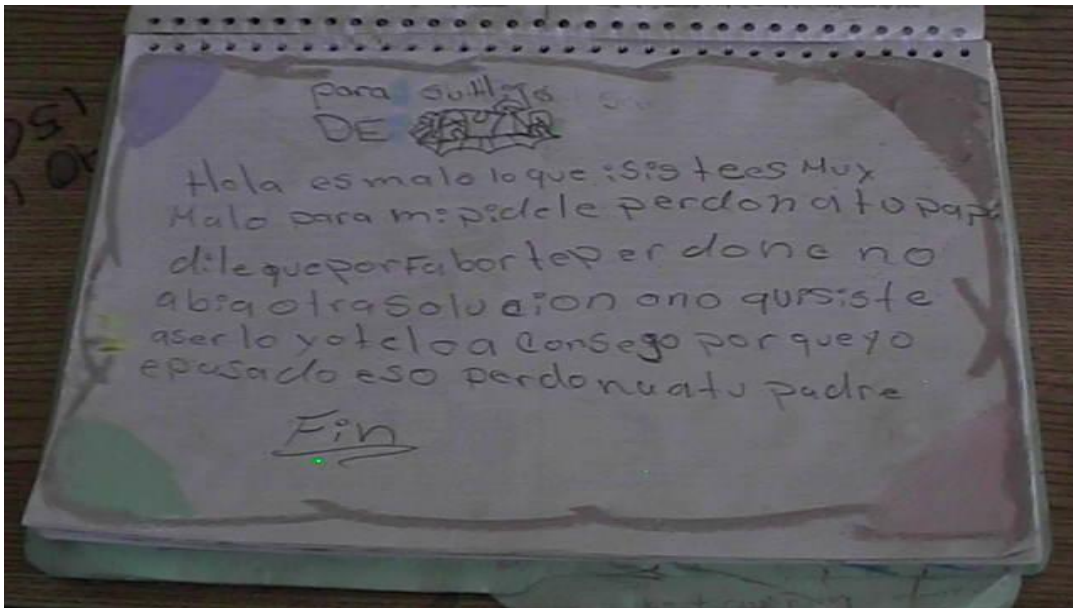 Para su Hijo
DE
Hola es malo lo que isistees Muy
Malo para mi pidele perdon a tu papa
dile que por fabor te perdone no
abia otra solucion ono quisiste
aserlo yo telo a consego por que yo
e pasado eso perdonua tu padre
Fin